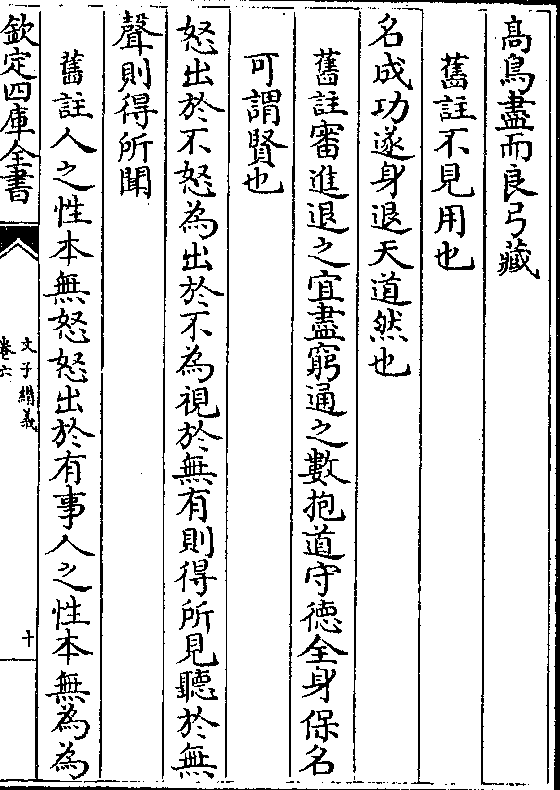 高鳥盡而良弓藏
舊註不見用也
名成功遂身退天道然也
舊註審進退之宜盡窮通之數抱道守德全身保名
可謂賢也
怒出於不怒為出於不為視於無有則得所見聽於無
聲則得所聞
舊註人之性本無怒怒出於有事人之性本無為為
欽定四庫全書
文子纘義
卷六
十